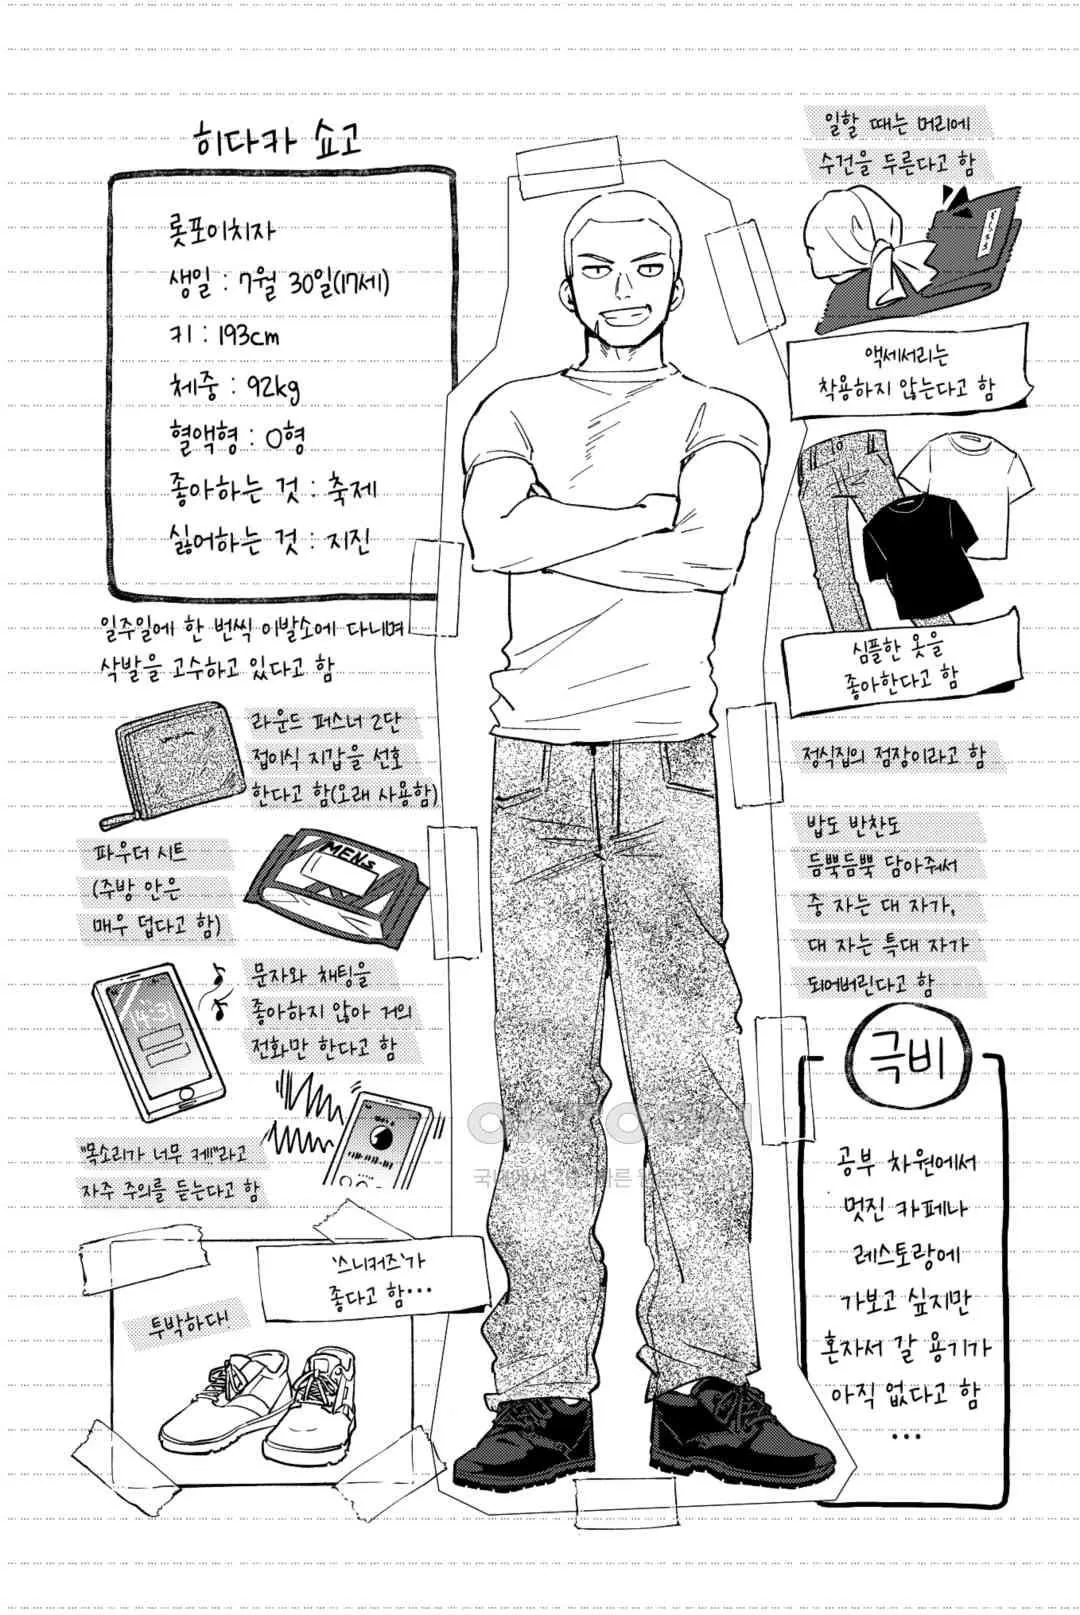 히다카 쇼고
롯포이치자
생일 : 7월 30일(17세)
키 : 193cm
체중 : 92kg
혈액형 : O형
좋아하는 것 : 축제
싫어하는 것 : 지진
일주일에 한 번씩 이발소에 다니며
삭발을 고수하고 있다고 함
라운드 퍼스너 2단
접이식 지갑을 선호
한다고 함(오래 사용함)
파우더 시트
(주방 안은
매우 덥다고 함)
MEN's
문자와 채팅을
좋아하지 않아 거의
전화만 한다고 함
"목소리가 너무 커!!"라고
자주 주의를 듣는다고 함
'스니커즈'가
좋다고 함…
투박하다!
일할 때는 머리에
수건을 두른다고 함
액세서리는
착용하지 않는다고 함
심플한 옷을
좋아한다고 함
정식집의 점장이라고 함
밥도 반찬도
듬뿍듬뿍 담아줘서
중 자는 대 자가,
대 자는 특대 자가
되어버린다고 함
극비
공부 차원에서
멋진 카페나
레스토랑에
가보고 싶지만
혼자서 갈 용기가
아직 없다고 함
…